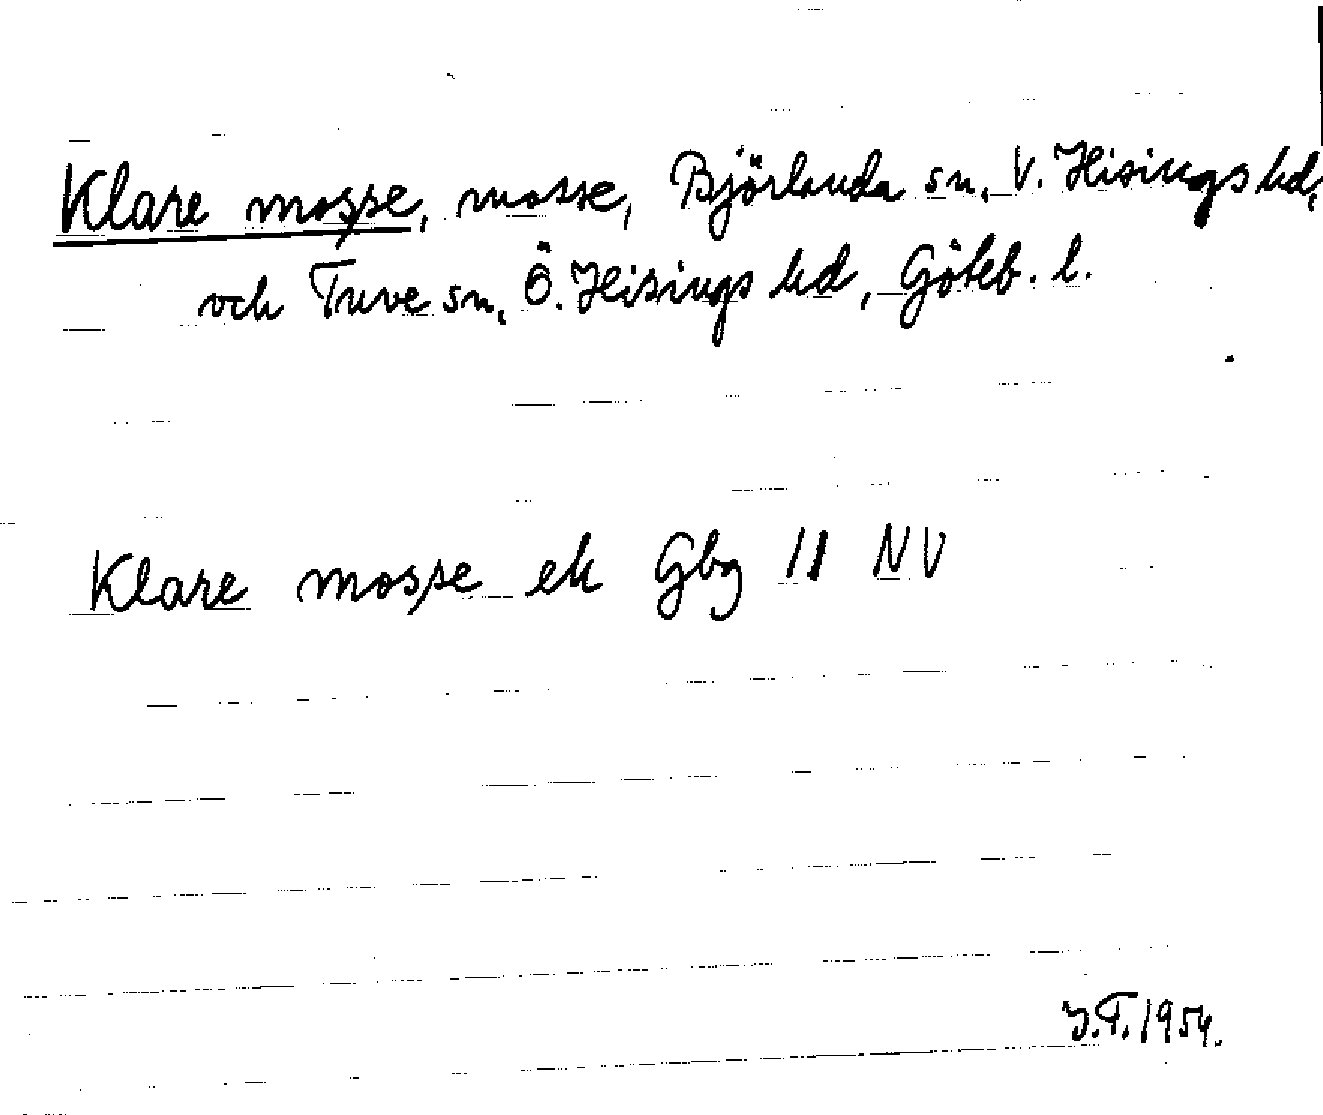 Klare mosse, mosse, Björlanda sn, V. Hisings hd,
och Tuve sn, Ö. Hisings hd, Göteb. l.
Klare mosse ek Gbg 11 NV
J.T. 1954.